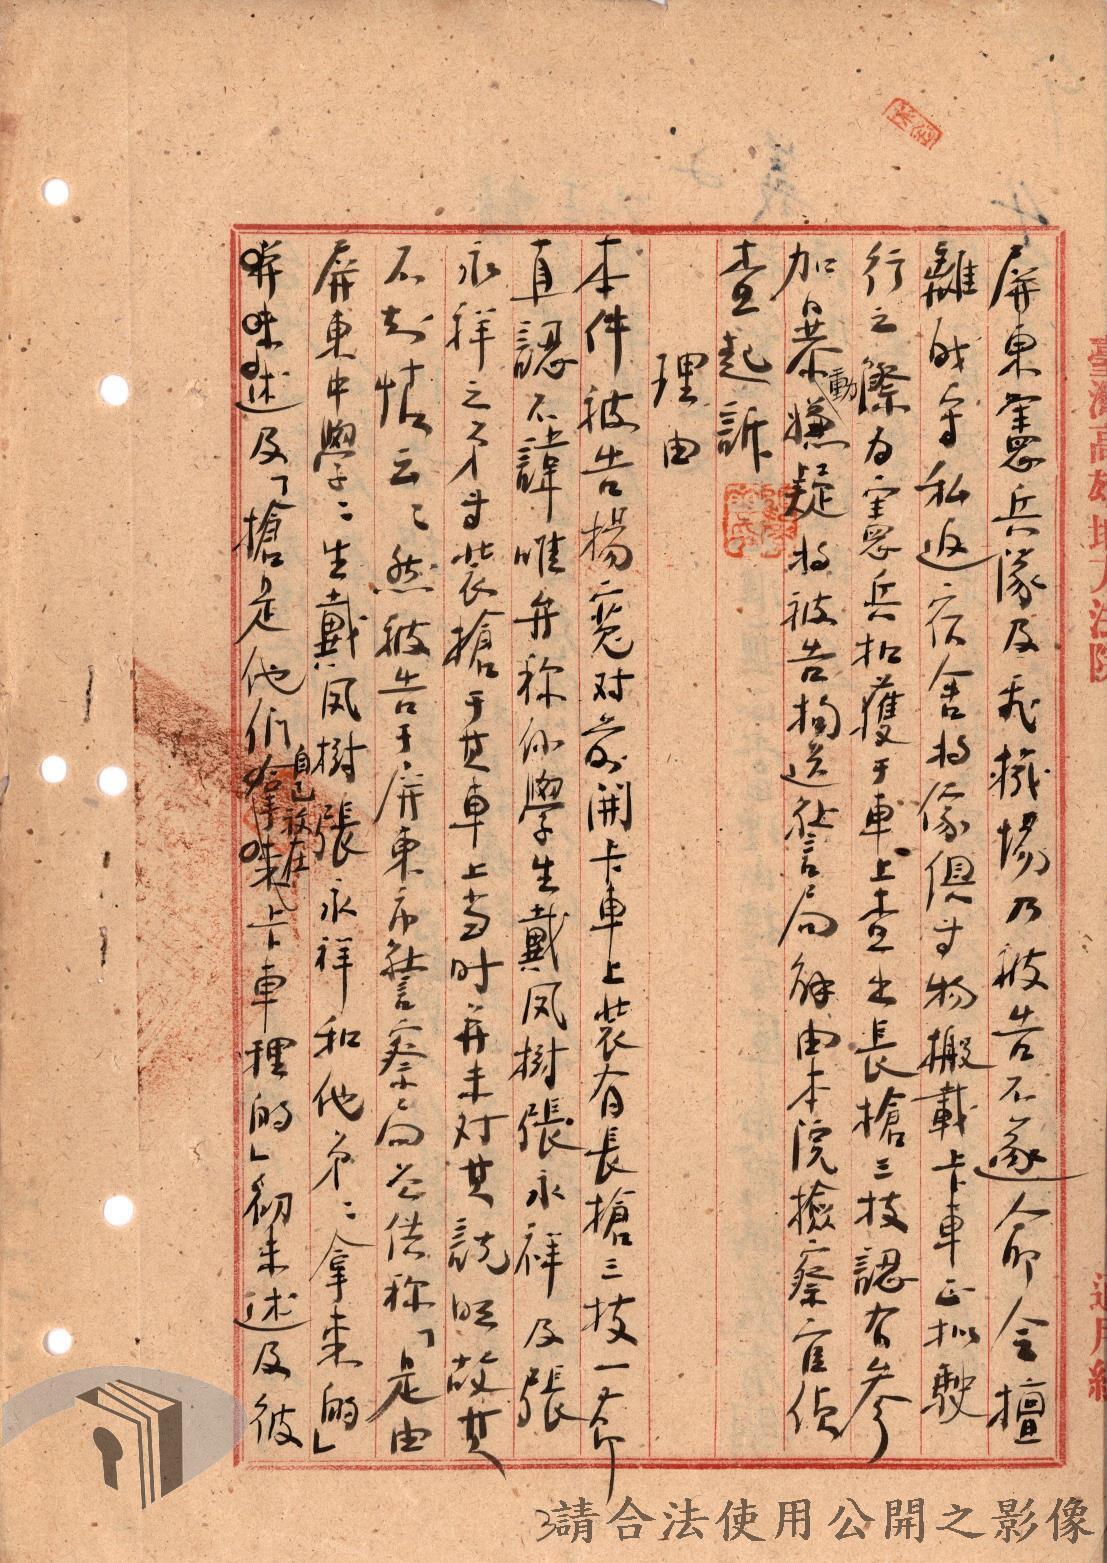 屏東憲兵隊及飛機場乃被告不遂命令擅
離職守私返宿舍将傢俱等物搬載卡車正擬駛
行之際为憲兵扣獲于車上查出長槍三枝認有参
加暴動嫌疑将被告拘送警局解由本院檢察官偵
查起訴
理由
本件被告楊寬对前開卡車上裝有長槍三枝一節
直認不諱唯弁称係學生戴凤樹張永祥及張
永祥之弟等裝槍于其車上当时并未对其說明故其
不知情云云然被告于屏東市警察局先供称「是由
屏東中學學生戴凤樹張永祥和他弟弟拿来的」
述及「槍是他們自己放在卡車裡的」初未述及彼
臺灣高雄地方法院
通用紙
3
請合法使用公開之影像